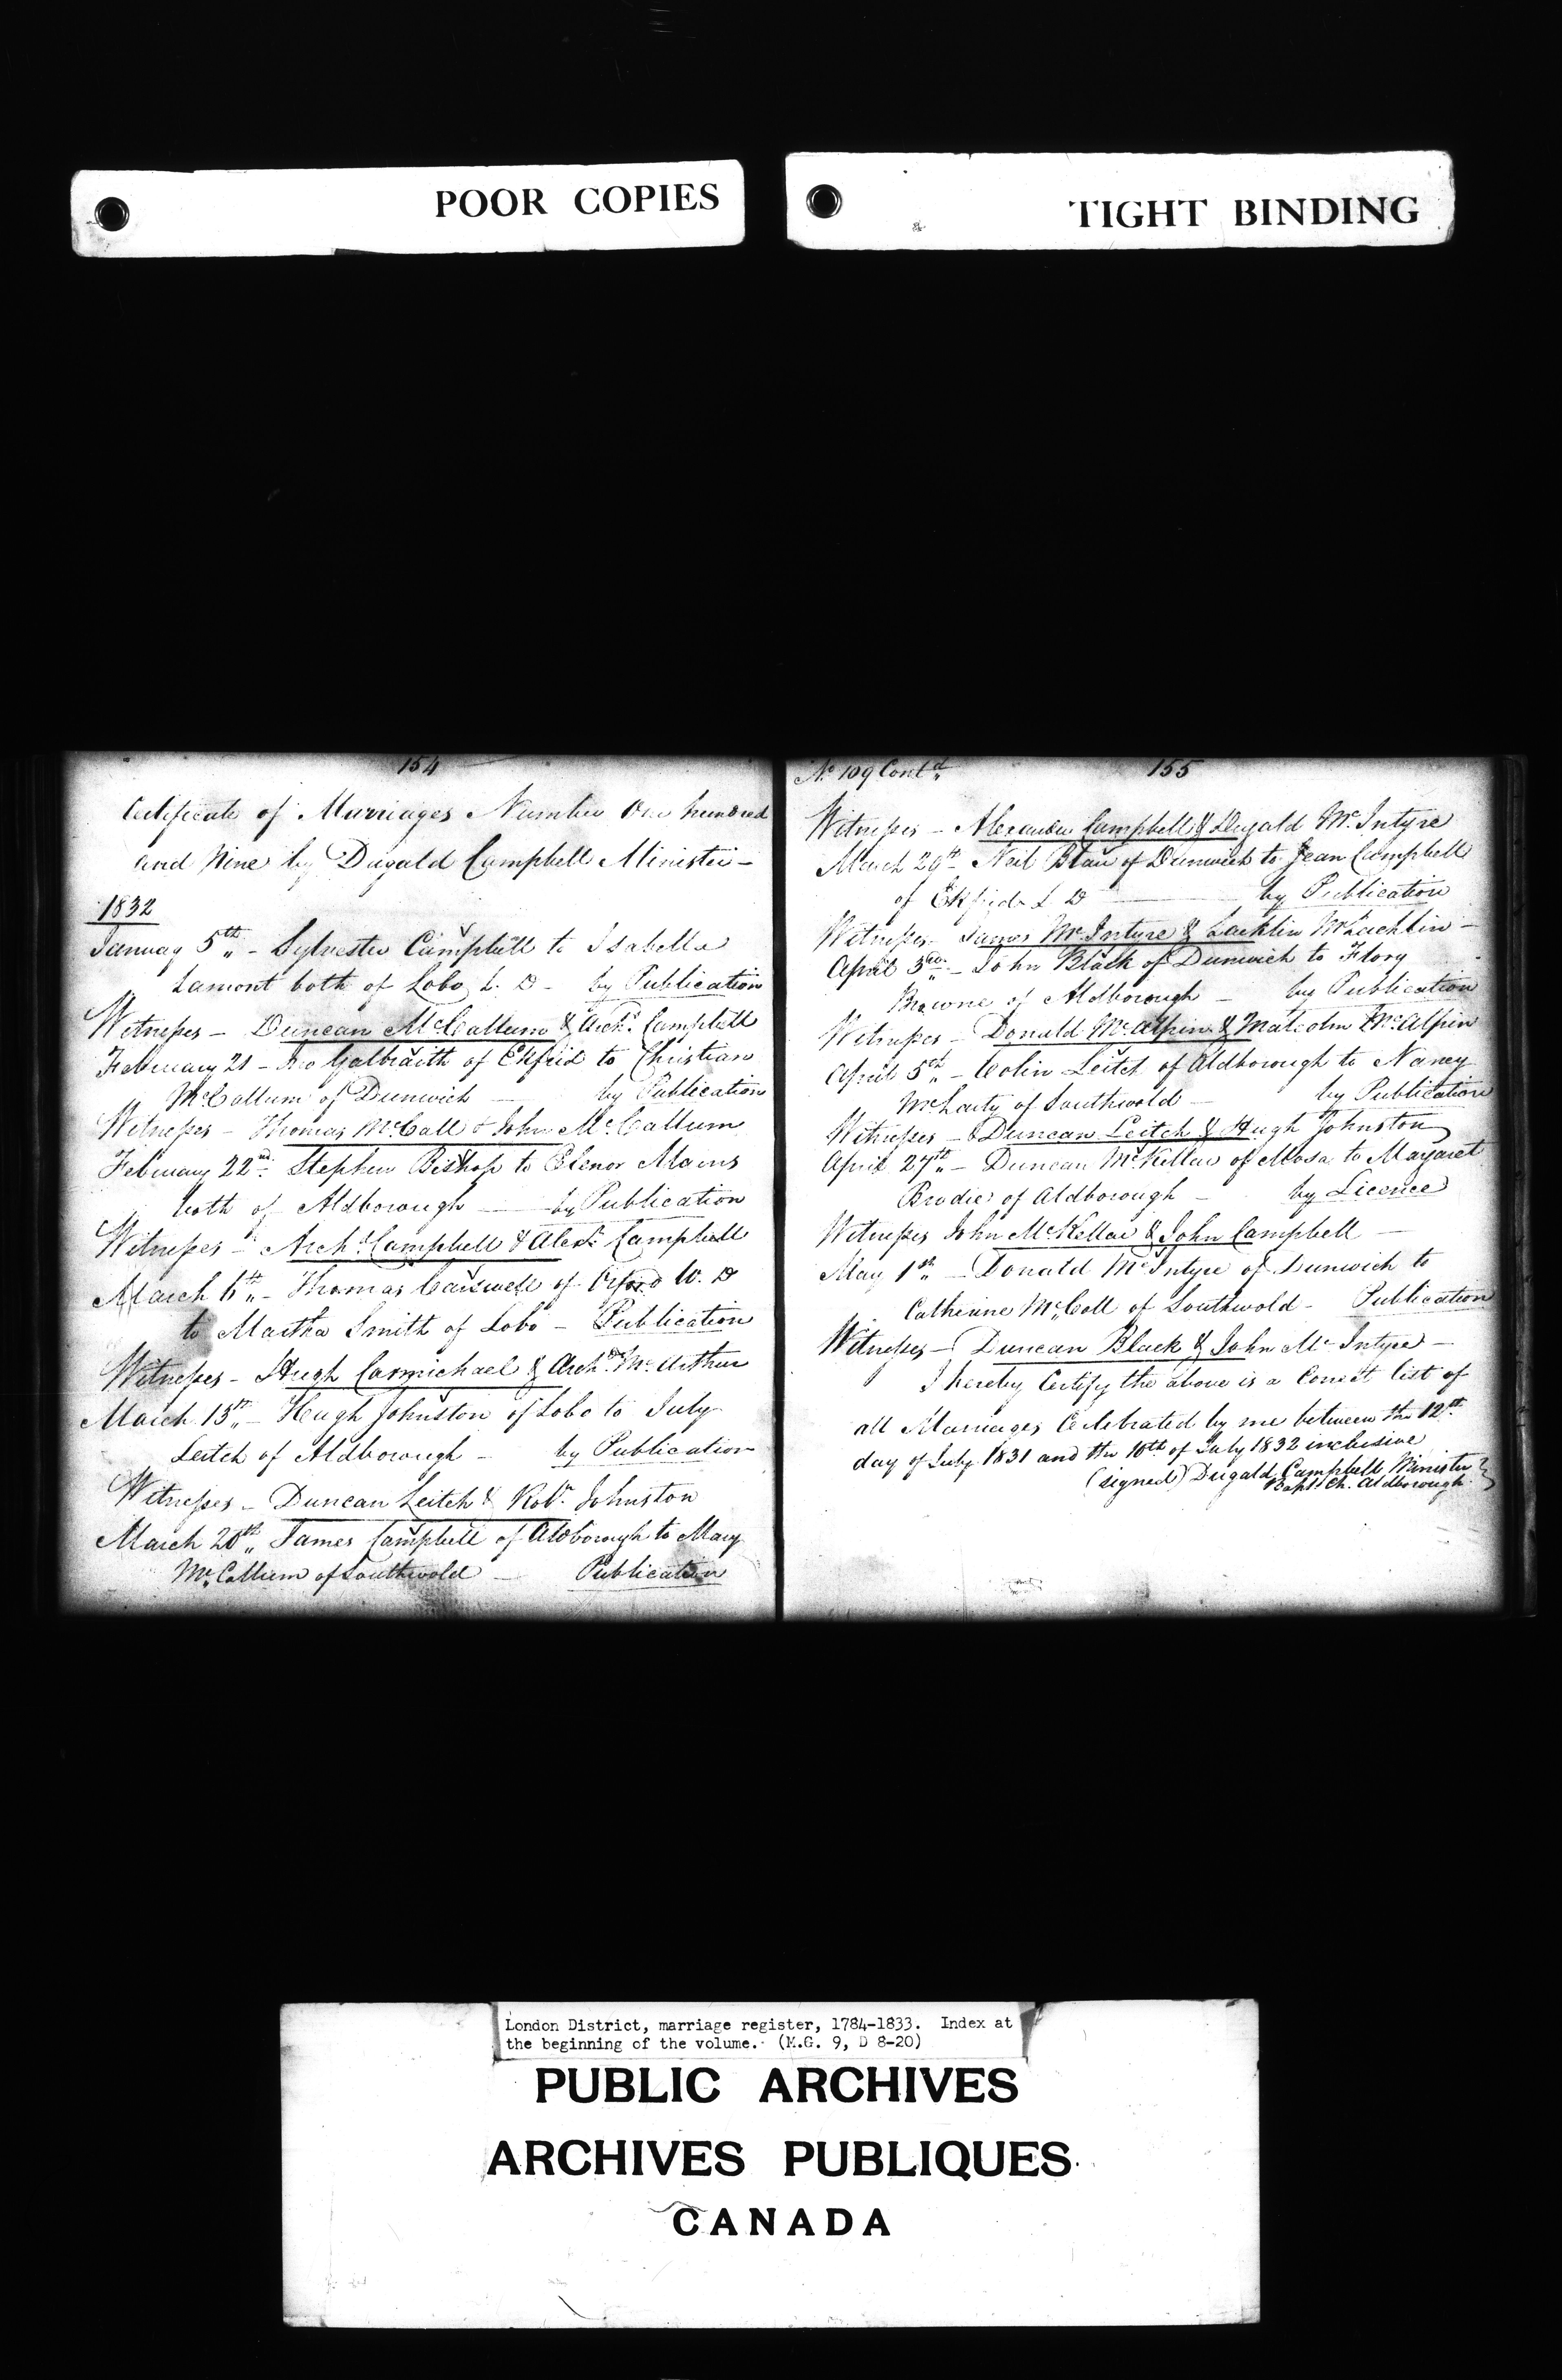 POOR COPIES
TIGHT BINDING
154
Certificate of Marriages Number One hundred
and Nine by Dugald Campbell Minister —
1832
January 5th „ - Sylvester Campbell to Isabella
Lamont both of Lobo L. D - by Publication
Witnesses - Duncan McCallum & Archd. Campbell
February 21 - Galbraith of Ekfrid to Christian
McCallum of Dunwich — by Publication
Witnesses - Thomas McCall & John McCallum
February 22nd. Stephen Bishop to Elenor Mains
both of Aldborough — by Publication
Witnesses - Archd. Campbell & Alexr. Campbell
March 6th „ - Thomas Carswell of Orford W. D
to Martha Smith of Lobo - Publication
Witnesses - Hugh Carmichael & Archd. McArthur
March 13th „ - Hugh Johnston of Lobo to July
Leitch of Aldborough - by Publication
Witnesses - Duncan Leitch & Robt. Johnston
March 20th „ James Campbell of Aldborough to Mary
McCallum of Southwold — Publication
No. 109 Contd „
155
Witnesses - Alexander Campbell & Dugald McIntyre
March 29th - Neil Blair of Dunwich to Jean Campbell
of Ekfrid L D — by Publication
Witnesses - James McIntyre & Lachlin McLachlin -
April 3rd „ - John Black of Dunwich to Flory
Browne of Aldborough - by Publication
Witnesses - Donald McAlpin & Malcolm McAlpin
April 5th „ - Colin Leitch of Aldborough to Nancy
of Southwold - by Publication
Witnesses - Duncan Leitch & Hugh Johnston
April 27th „ - Duncan McKellar of Mosa to Margaret
Brodie of Aldborough - by Licence
Witnesses John McKellar & John Campbell —
May 1st „ - Donald McIntyre of Dunwich to
Catherine McColl of Southwold - Publication
Witnesses - Duncan Black & John McIntyre -
I hereby Certify the above is a Correct list of
all Marriages Celebrated by me between the 12th
day of July 1831 and the 10th of July 1832 inclusive
(signed) Dugald Campbell Minister
Bapt. Ch. Aldborough
London District, marriage register, 1784-1833. Index at
the beginning of the volume. (M.G. 9, D 8-20)
PUBLIC ARCHIVES
ARCHIVES PUBLIQUES
CANADA